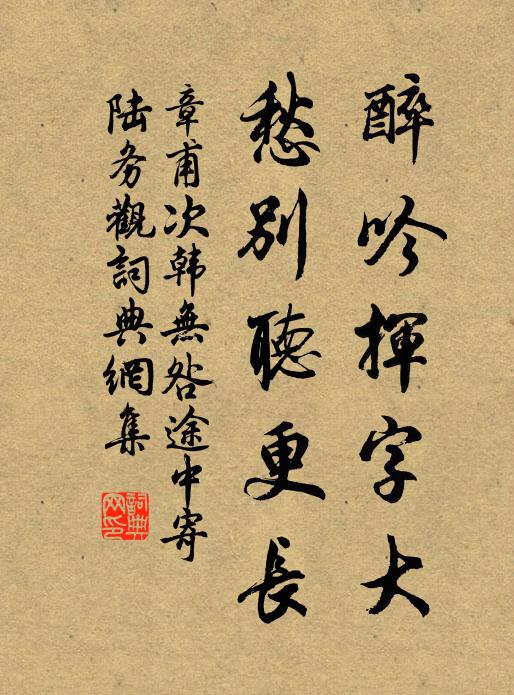 醉吟揮字大
愁別聽更長
章甫次韩無咎途中寄
陆务觀詞典網集
詞典
网印